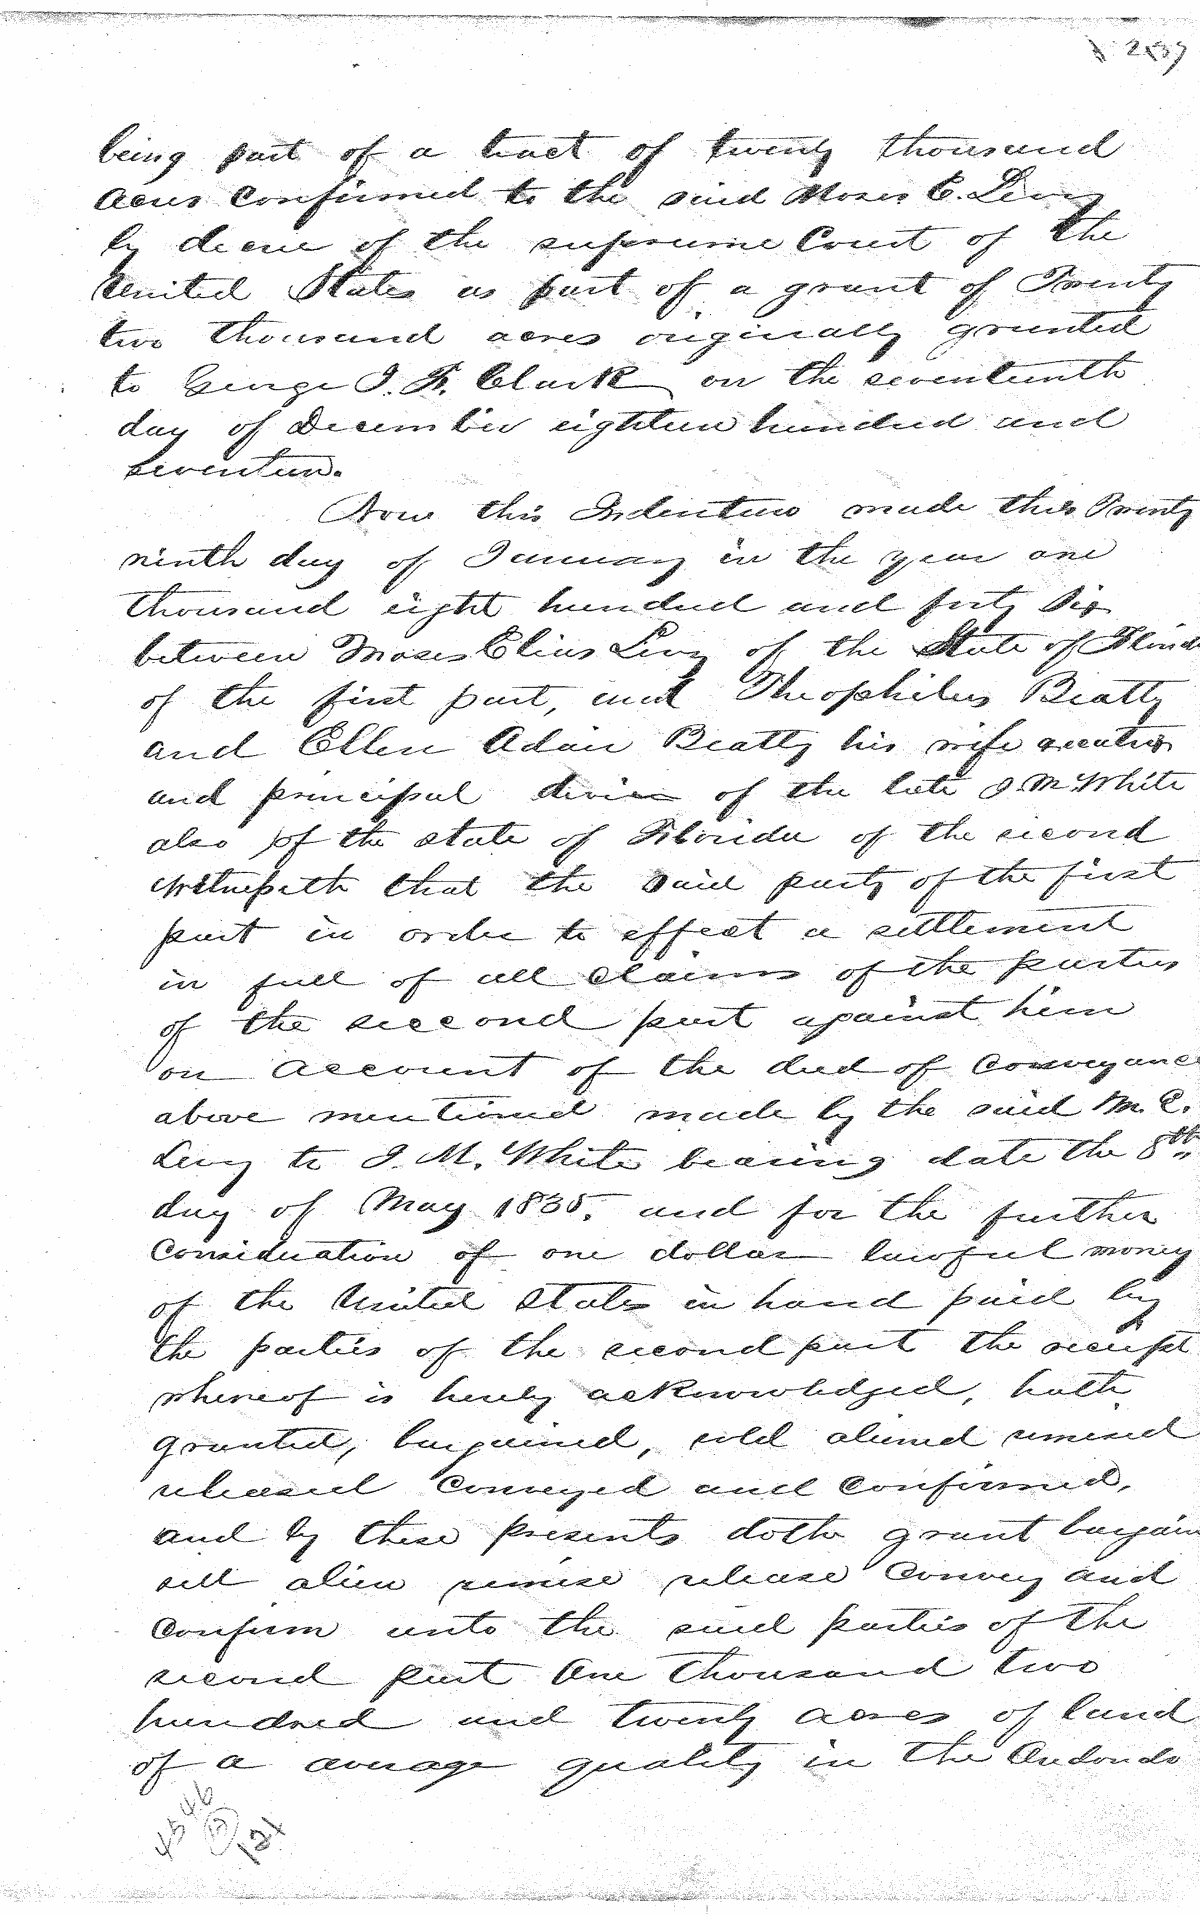 being part of a tract of twenty thousand
acres confirmed to the said Moses E. Levy
by decree of the supreme Court of the
United States as part of a grant of Twenty
two thousand acres originally granted
to George J. F. Clark on the seventeenth
day of December eighteen hundred and
seventeen.
Now this Indenture made this Twenty
ninth day of January in the year one
thousand eight hundred and forty Six
between Moses Elias Levy of the State of Florida
of the first part, and Theophilus Beatty
and Ellen Adair Beatty his wife executrix
and principal devisee of the late J. M. White
also of the state of Florida of the second
Witnesseth that the said party of the first
part in order to effect a settlement
in full of all claims of the parties
of the second part against him
on account of the deed of conveyance
above mentioned made by the said M. E.
Levy to J. M. White bearing date the 8th
day of May 1835. and for the further
Consideration of one dollar lawful money
of the United States in hand paid by
the parties of the second part the receipt
whereof is hereby acknowledged, hath
granted, bargained, sold aliened remised
released conveyed and confirmed,
and by these presents doth grant bargain
sell alien remise release convey and
confirm unto the said parties of the
second part One thousand two
hundred and twenty acres of land
of a average quality in the Arredondo
4546
12
121